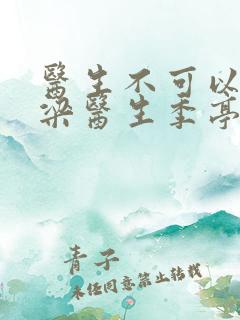 醫生不可以
梁醫生季亭
青子
未任同意禁止转载